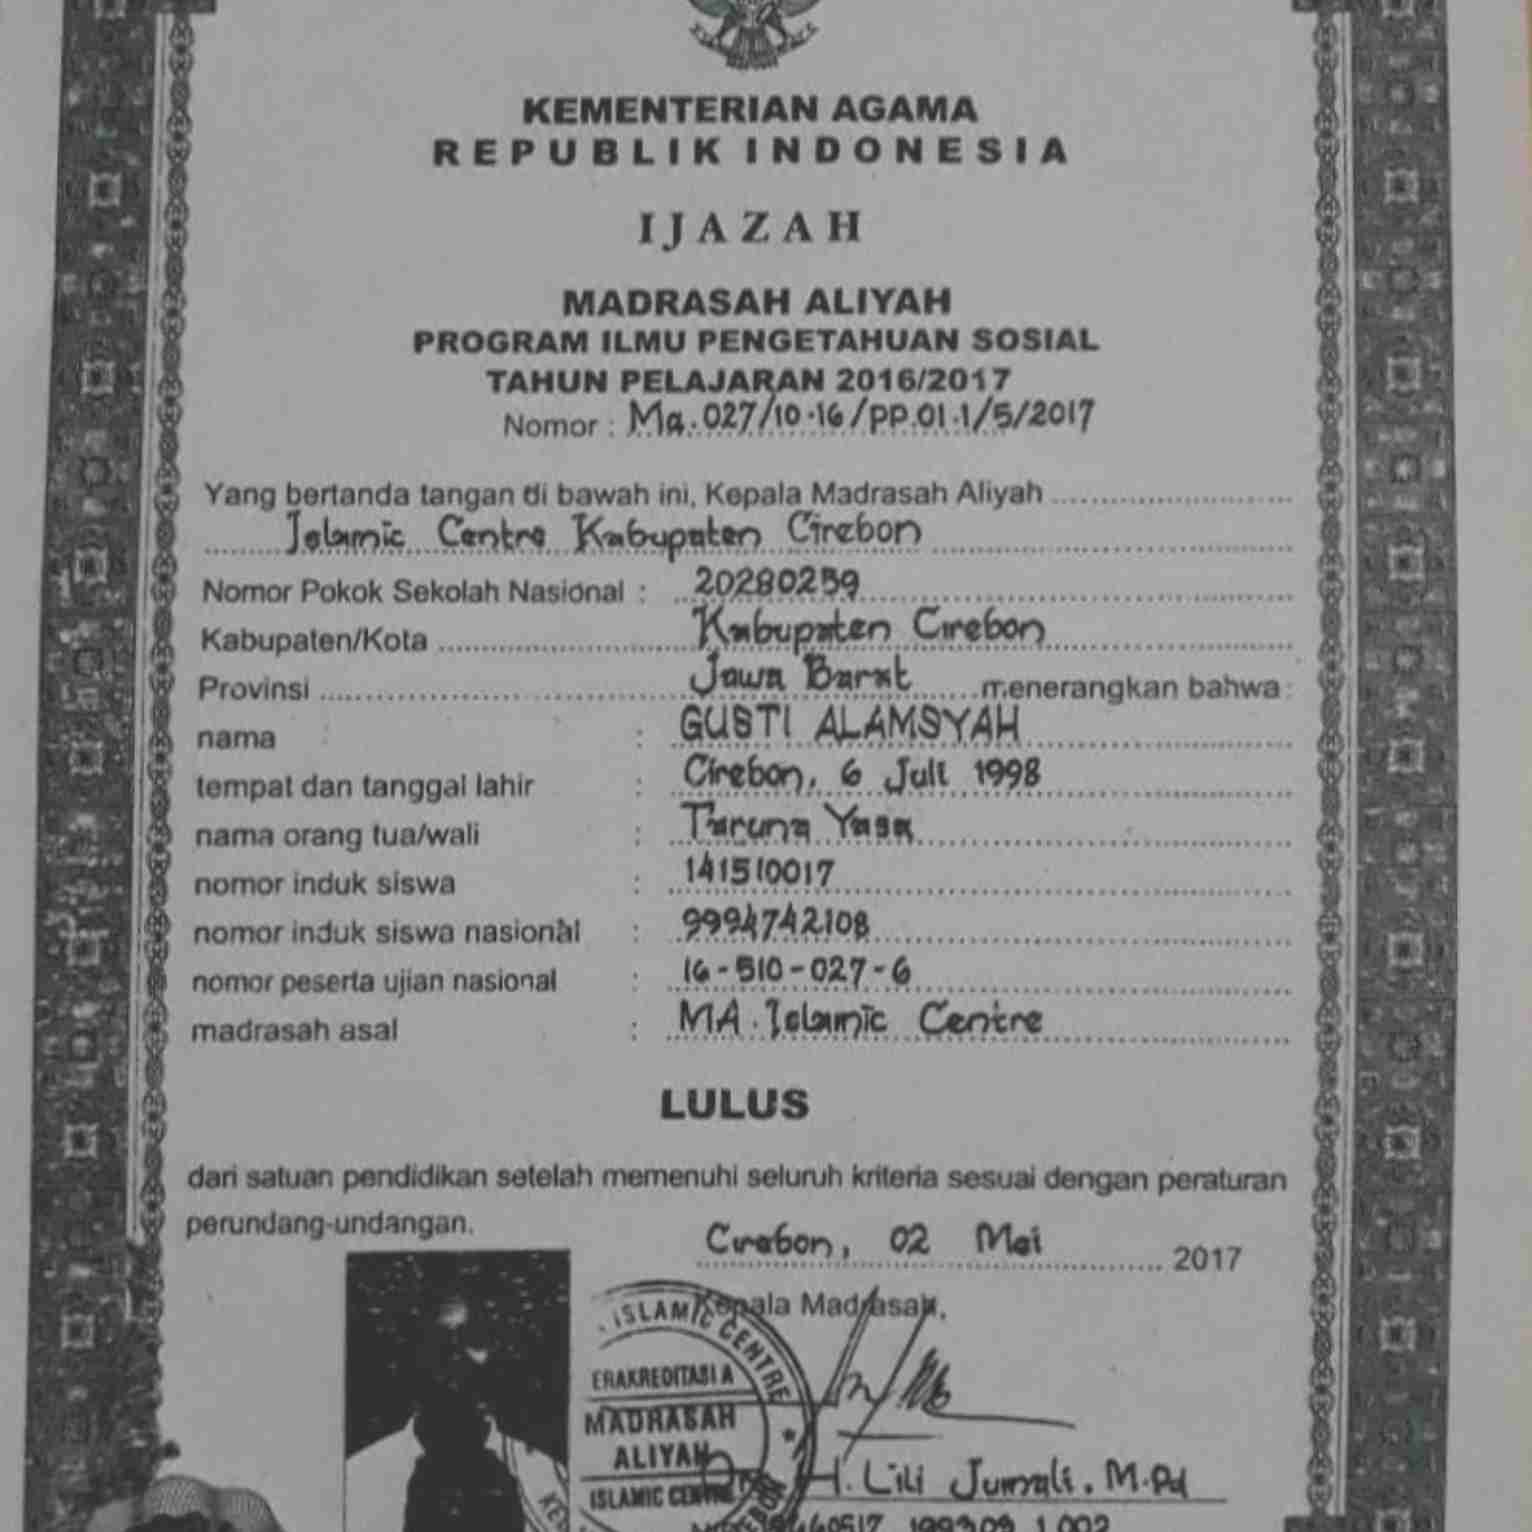 KEMENTERIAN AGAMA
REPUBLIK INDONESIA
IJAZAH
MADRASAH ALIYAH
PROGRAM ILMU PENGETAHUAN SOSIAL
TAHUN PELAJARAN 2016/2017
Nomor : Ma.027/10.16/PP.01.1/5/2017
Yang bertanda tangan di bawah ini, Kepala Madrasah Aliyah
Islamic Centre Kabupaten Cirebon
Nomor Pokok Sekolah Nasional : 20280259
Kabupaten/Kota Kabupaten Cirebon
Provinsi Jawa Barat menerangkan bahwa :
nama : GUSTI ALAMSYAH
tempat dan tanggal lahir : Cirebon, 6 Juli 1998
nama orang tua/wali : Taruna Yasa
nomor induk siswa : 141510017
nomor induk siswa nasional : 9994742108
nomor peserta ujian nasional : 16-510-027-6
madrasah asal : MA. Islamic Centre
LULUS
dari satuan pendidikan setelah memenuhi seluruh kriteria sesuai dengan peraturan
perundang-undangan.
Cirebon, 02 Mei 2017
Kepala Madrasah,
ISLAMIC CENTRE
ERAKREDITASI A
MADRASAH
ALIYAH
ISLAMIC CENTRE
H. Lili Jumali, M.Pd